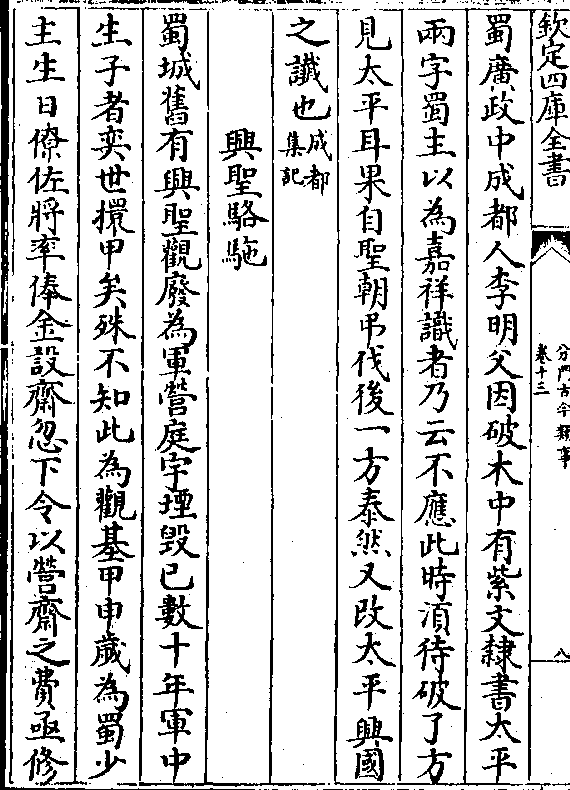 欽定四庫全書
分門古今類事
卷十三
八
蜀廣政中成都人李明父因破木中有紫文隸書太平
兩字蜀主以為嘉祥識者乃云不應此時湏待破了方
見太平耳果自聖朝弔伐後一方泰然又改太平興國
之讖也成都集記
興聖駱駞
蜀城舊有興聖觀廢為軍營庭宇堙毀已數十年軍中
生子者奕世擐甲矣殊不知此為觀基甲申歲為蜀少
主生日僚佐將率俸金設齋忽下令以營齋之費亟修